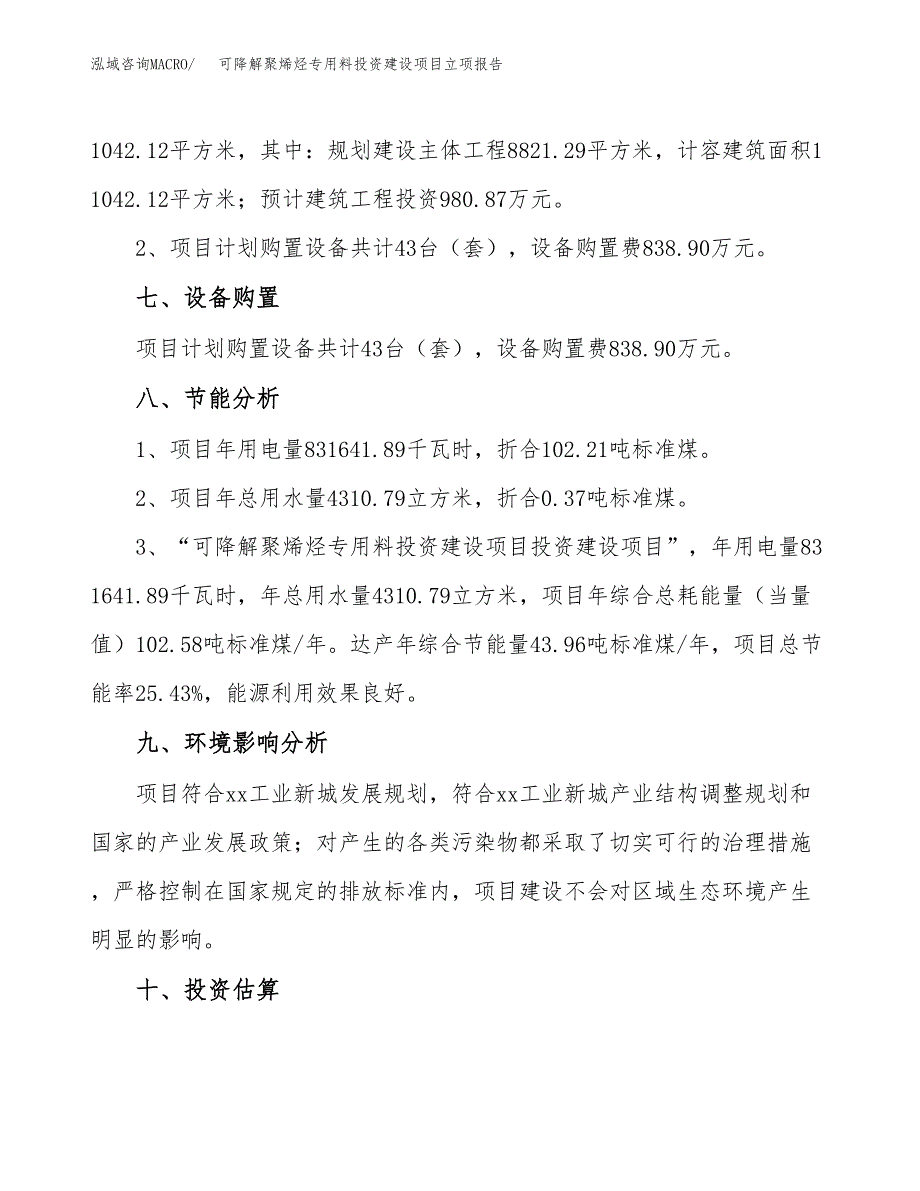 泓域咨询MACRO/ 可降解聚烯烃专用料投资建设项目立项报告
1042.12平方米，其中：规划建设主体工程8821.29平方米，计容建筑面积1
1042.12平方米；预计建筑工程投资980.87万元。
2、项目计划购置设备共计43台（套），设备购置费838.90万元。
七、设备购置
项目计划购置设备共计43台（套），设备购置费838.90万元。
八、节能分析
1、项目年用电量831641.89千瓦时，折合102.21吨标准煤。
2、项目年总用水量4310.79立方米，折合0.37吨标准煤。
3、“可降解聚烯烃专用料投资建设项目投资建设项目”，年用电量83
1641.89千瓦时，年总用水量4310.79立方米，项目年综合总耗能量（当量
值）102.58吨标准煤/年。达产年综合节能量43.96吨标准煤/年，项目总节
能率25.43%，能源利用效果良好。
九、环境影响分析
项目符合xx工业新城发展规划，符合xx工业新城产业结构调整规划和
国家的产业发展政策；对产生的各类污染物都采取了切实可行的治理措施
，严格控制在国家规定的排放标准内，项目建设不会对区域生态环境产生
明显的影响。
十、投资估算